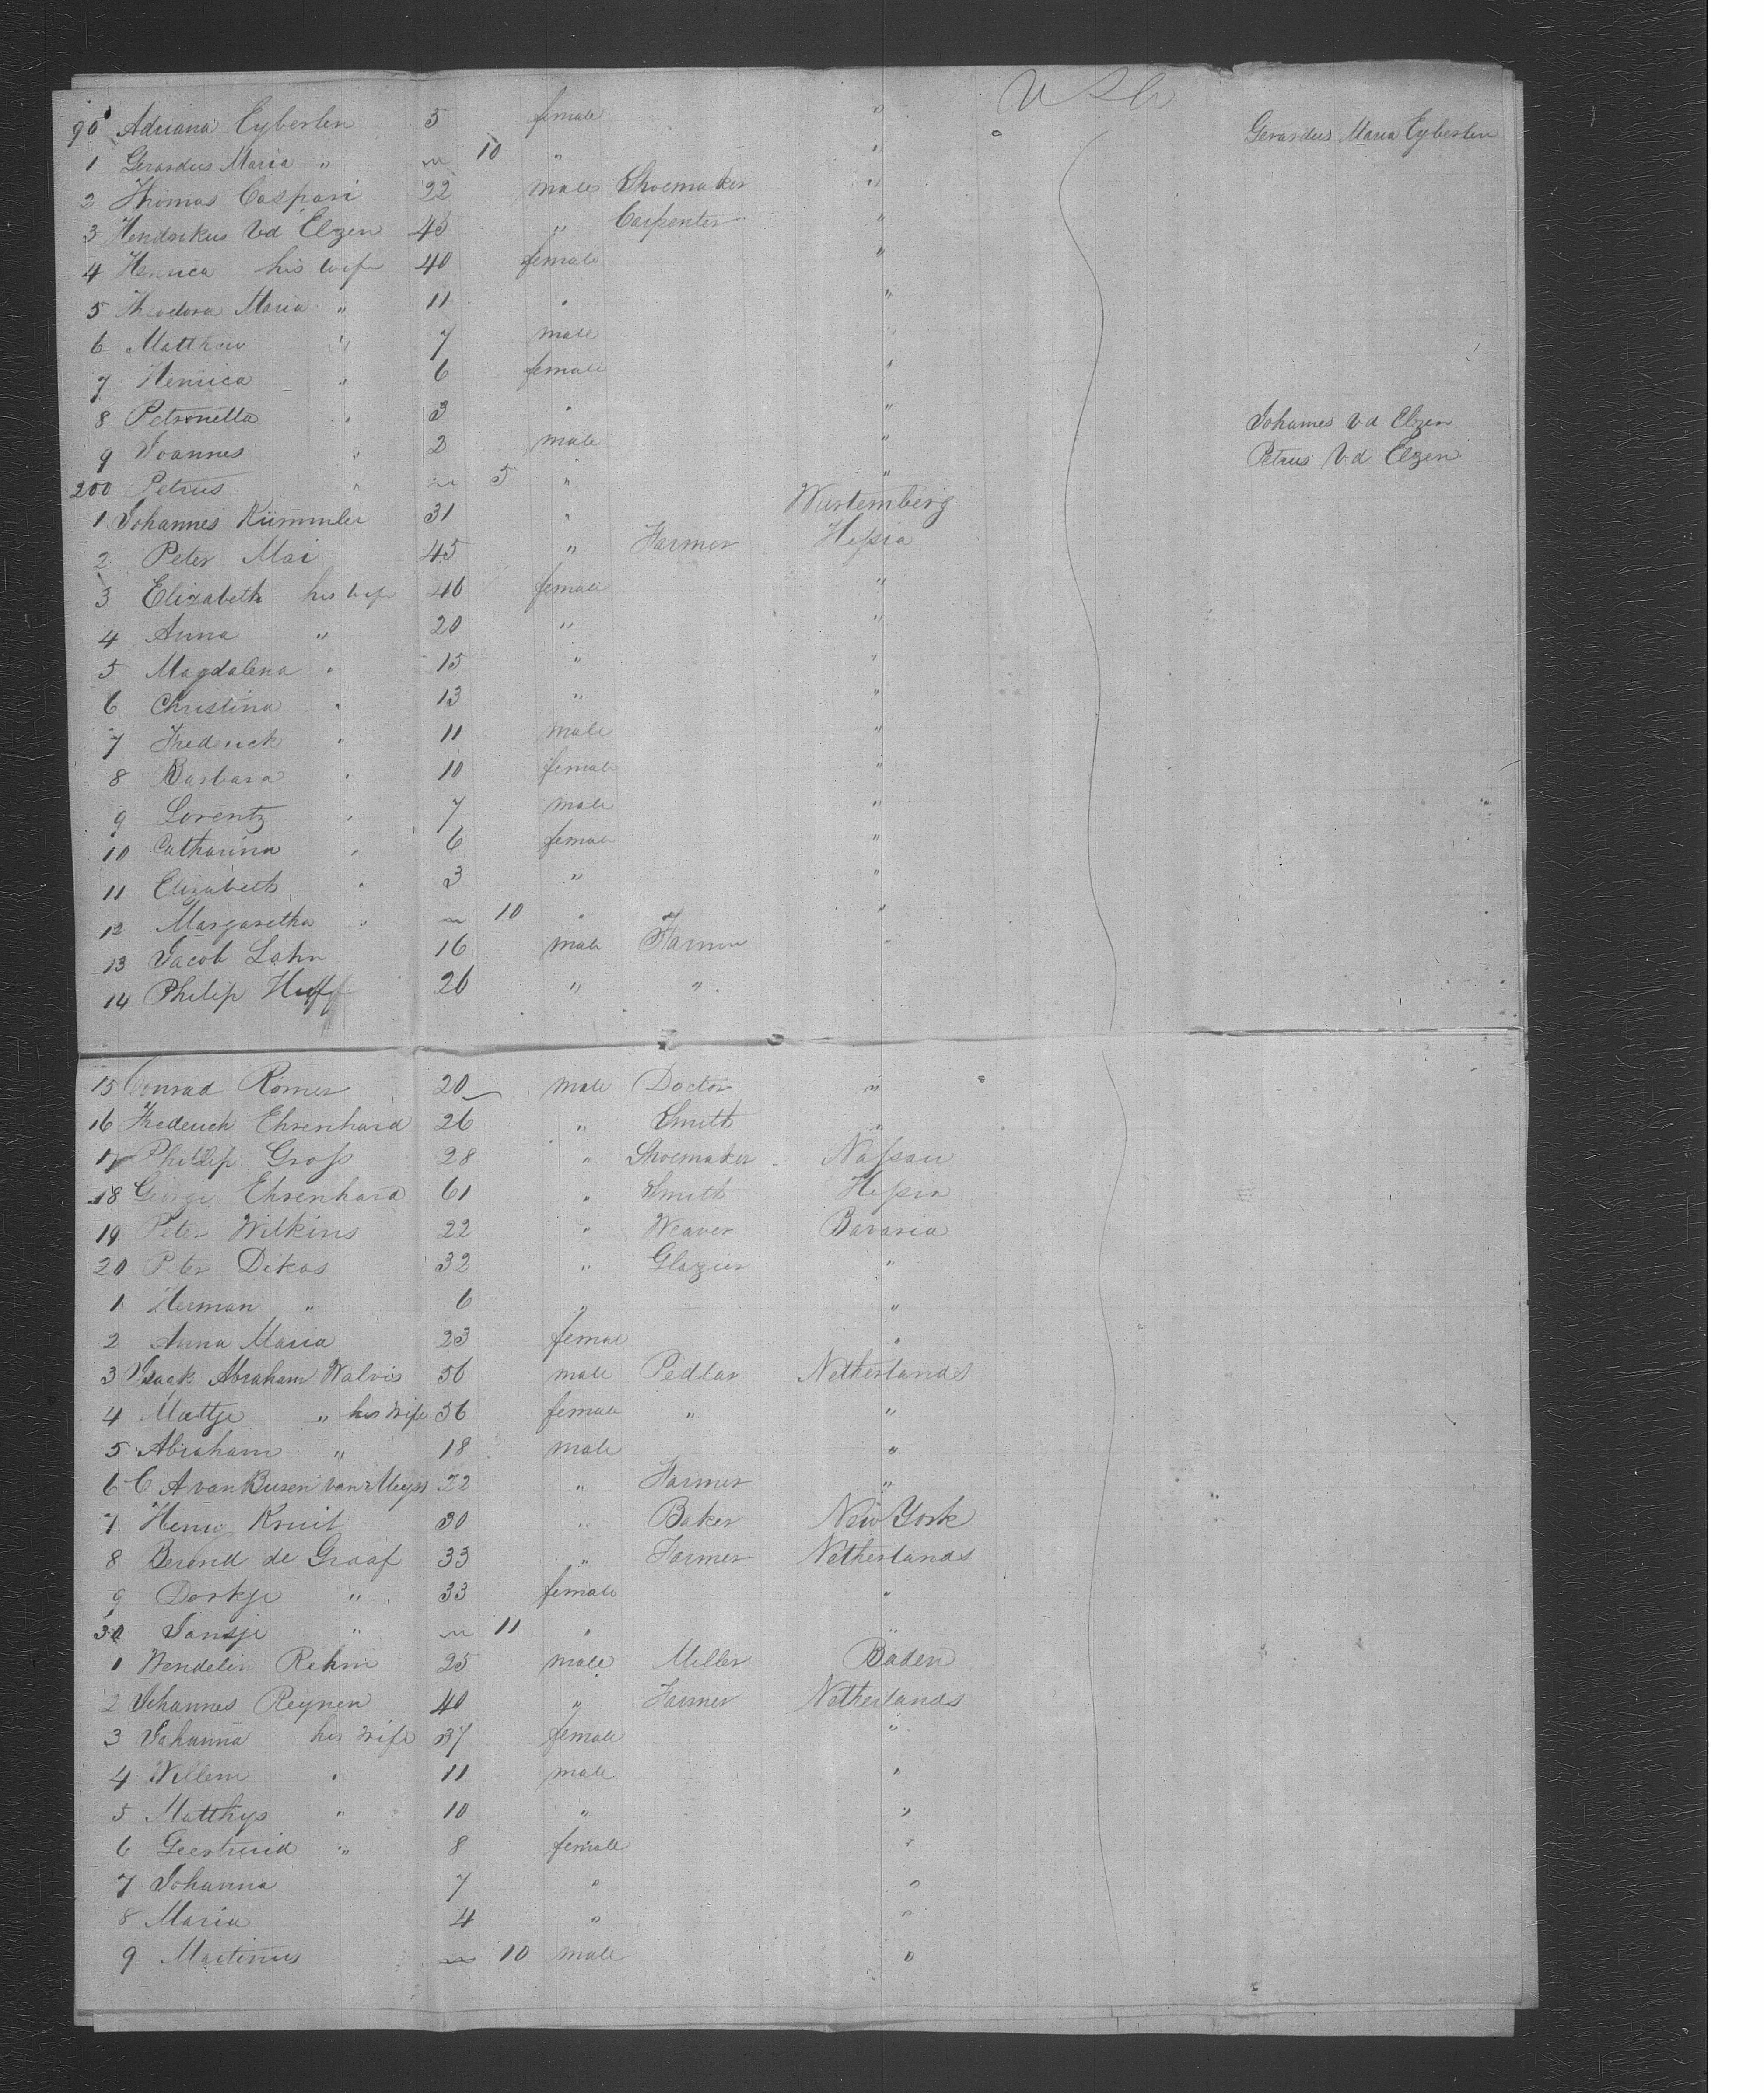 U S A
90 Adriana Eyberlen 5 female "
1 Gerardus Maria " ~ 10 " " Gerardus Maria Eyberlen
2 Thomas Caspari 22 male Shoemaker "
3 Hendrikus Vd Elzen 45 " Carpenter "
4 Henrica his wife 40 female "
5 Theodora Maria " 11 " "
6 Matthew " 7 male "
7 Henrica " 6 female "
8 Petronella " 3 " " Johannes Vd Elzen
9 Joannes " 2 male " Petrus Vd Elzen
200 Petrus " ~ 5 " "
1 Johannes Kümmler 31 " Wurtemberg
2 Peter Mai 45 " Farmer Heßia
3 Elizabeth his wife 46 female "
4 Anna " 20 " "
5 Magdalena " 15 " "
6 Christina " 13 " "
7 Frederick " 11 male "
8 Barbara " 10 female "
9 Lorentz " 7 male "
10 Catharina " 6 female "
11 Elizabeth " 3 " "
12 Margaretha " ~ 10 " "
13 Jacob Lahn 16 male Farmer "
14 Philip Huff 26 " " "
15 Conrad Romer 20 male Doctor "
16 Frederick Ehrenhard 26 " Smith "
17 Philip Groß 28 " Shoemaker Naßau
18 George Ehrenhard 61 " Smith Heßia
19 Peter Wilkins 22 " Weaver Bavaria
20 Peter Dikas 32 " Glazier "
1 Herman " 6 " "
2 Anna Maria 23 female "
3 Isaak Abraham Walvis 56 male Pedlar Netherlands
4 Mattje " his wife 56 female " "
5 Abraham " 18 male "
6 C A van Buren van 22 " Farmer "
7 Henry Kruit 30 " Baker New York
8 Berend de Graaf 33 " Farmer Netherlands
9 Dorkje " 33 female "
30 Jansje " ~ 11 " "
1 Wendelin Rehm 25 male Miller Baden
2 Johannes Reynen 40 " Farmer Netherlands
3 Johanna his wife 37 female "
4 Willem " 11 male "
5 Matthys " 10 " "
6 Geertruid " 8 female "
7 Johanna 7 " "
8 Maria 4 " "
9 Martinus ~ 10 male "